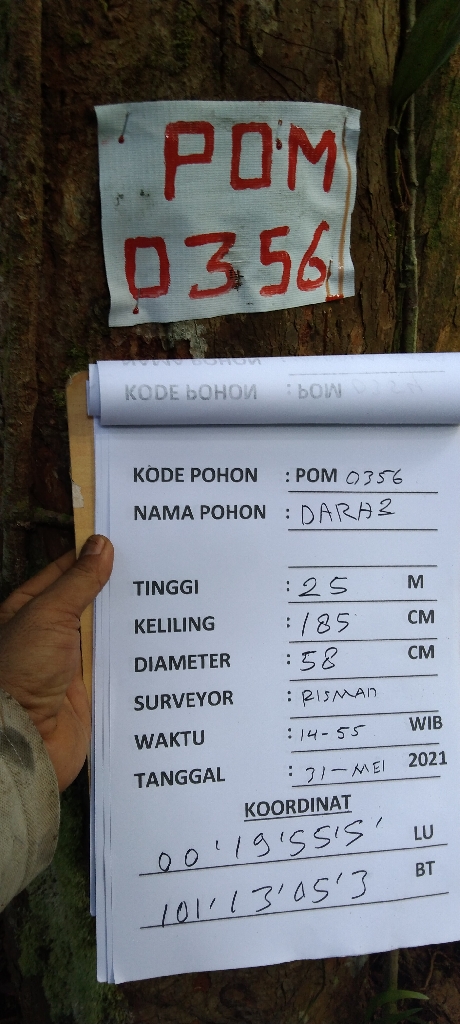 POM
0356
KODE POHON : POM
KODE POHON : POM 0356
NAMA POHON : DARAH
TINGGI : 25 M
KELILING : 185 CM
DIAMETER : 58 CM
SURVEYOR : RISMAN
WAKTU : 14-55 WIB
TANGGAL : 31-MEI 2021
KOORDINAT
00'19'55'5' LU
101'13'05'3 BT